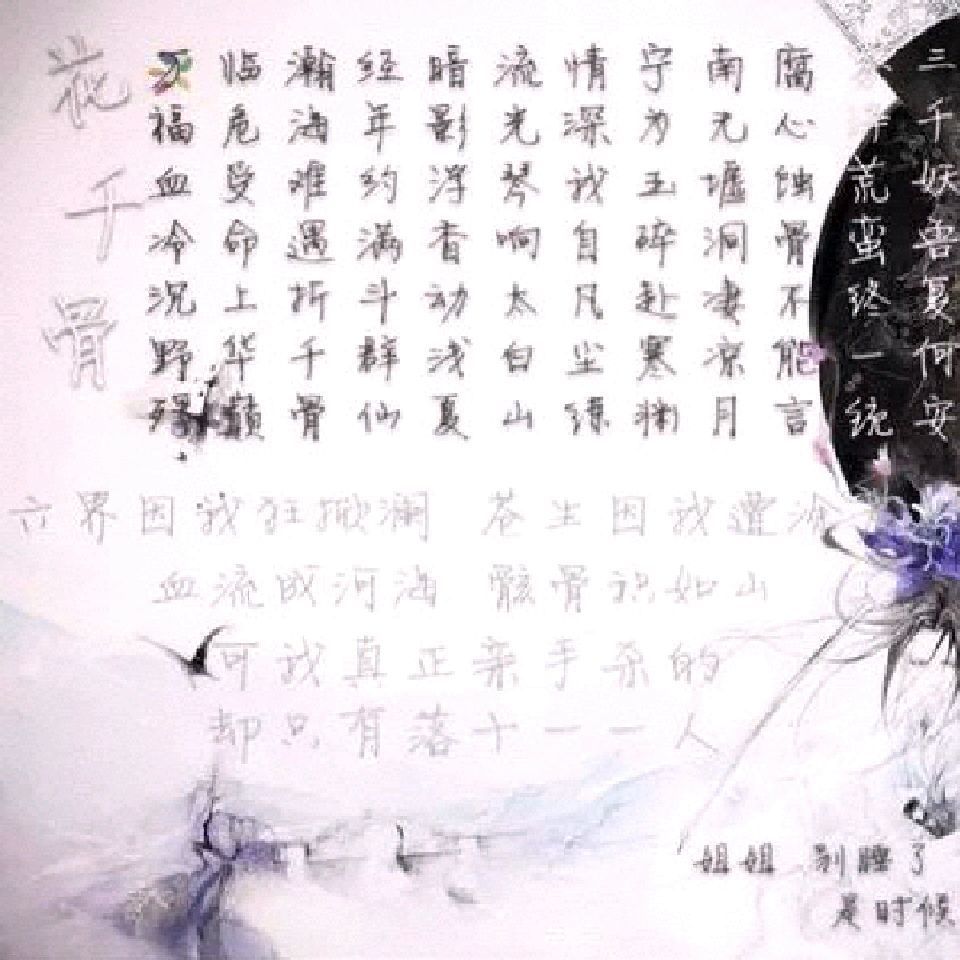 花千骨
万福血冷沉野殍
临危受命上华巅
瀚海难遇折千骨
经年约满斗群仙
暗影浮香动浅夏
流光琴响太白山
情深我自凡尘练
宁为玉碎赴寒渊
南无墟洞凄凉月
腐心蚀骨不能言
荒蛮终一统
三千妖兽复何安
六界因我狂掀澜 苍生因我遭
血流成河海 骸骨积如山
可我真正亲手杀的
却只有落十一一人
姐姐 别睡了
是时候